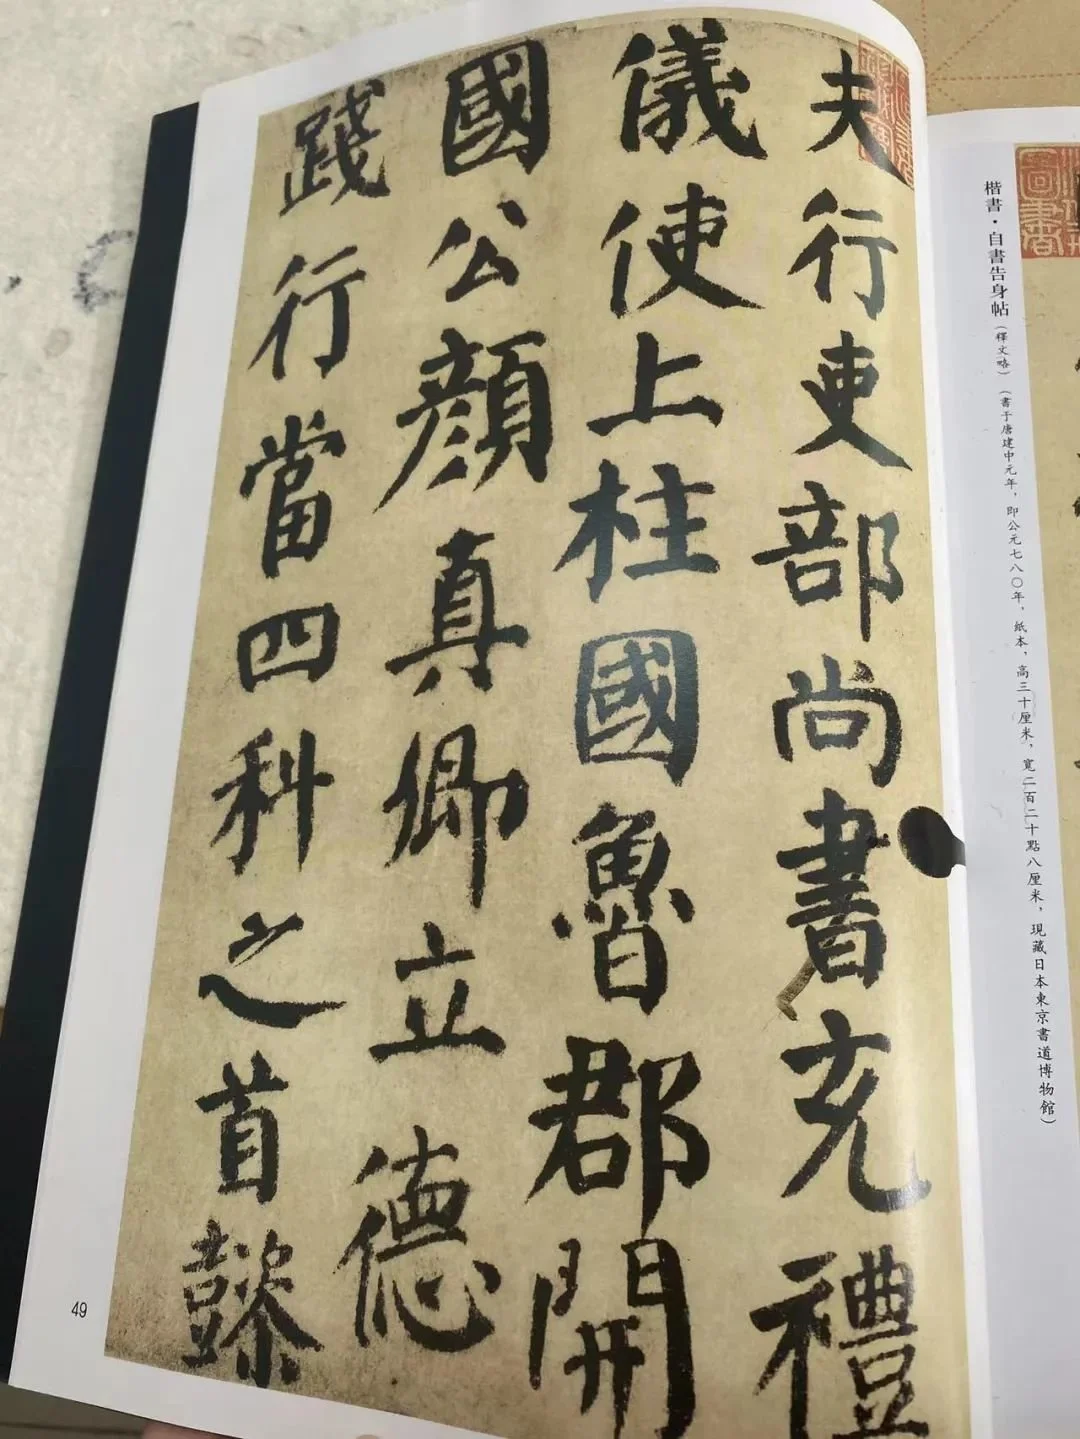 楷書・自書告身帖(釋文略)(書于唐建中元年，即公元七八〇年，紙本，高三十厘米，寬二百二十點八厘米，現藏日本東京書道博物館)
夫行吏部尚書充禮
儀使上柱國魯郡開
國公顔真卿立德
踐行當四科之首懿
49